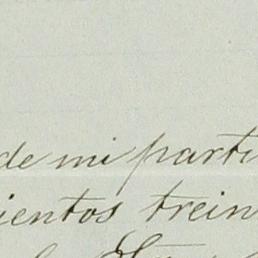 de mi parti
ientos trein